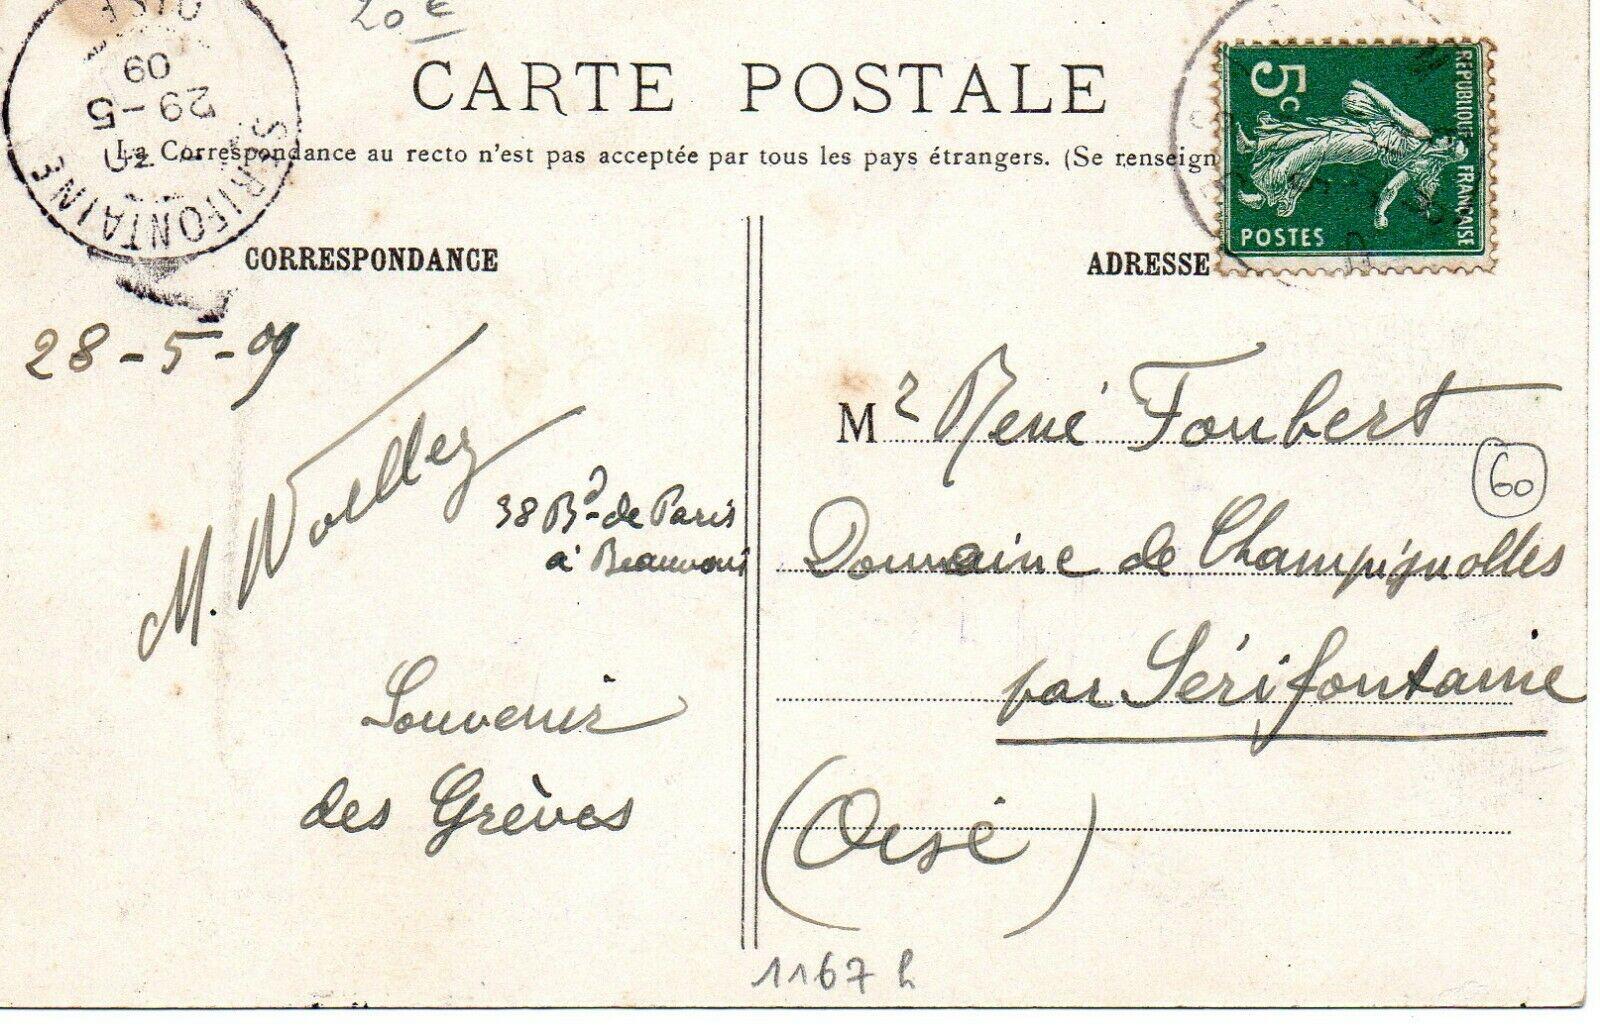 20 €
CARTE POSTALE
La Correspondance au recto n'est pas acceptée par tous les pays étrangers. (Se renseign
SERIFONTAINE
OISE
29 - 5
09
5c
REPUBLIQUE FRANÇAISE
POSTES
CORRESPONDANCE
28-5-09
38 Bd de Paris
à Beauvais
Souvenir
des Grèves
ADRESSE
Mr René Foubert
60
Domaine de Champignolles
par Sérifontaine
(Oise)
1167 h